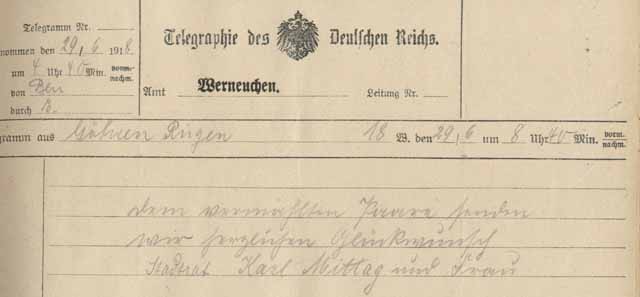 Telegramm Nr.
nommen den 29/6 1918
um 4 Uhr 40 Min. vorm. nachm.
von Bln
durch B.
Telegraphie des Deutschen Reichs.
Amt Werneuchen. Leitung Nr.
gramm aus Göhren Rügen 18 W. den 29/6 um 8 Uhr 40 Min. vorm. nachm.
dem vermählten Paare senden
wir herzlichen Glückwunsch
Stadtrat Karl Mittag und Frau